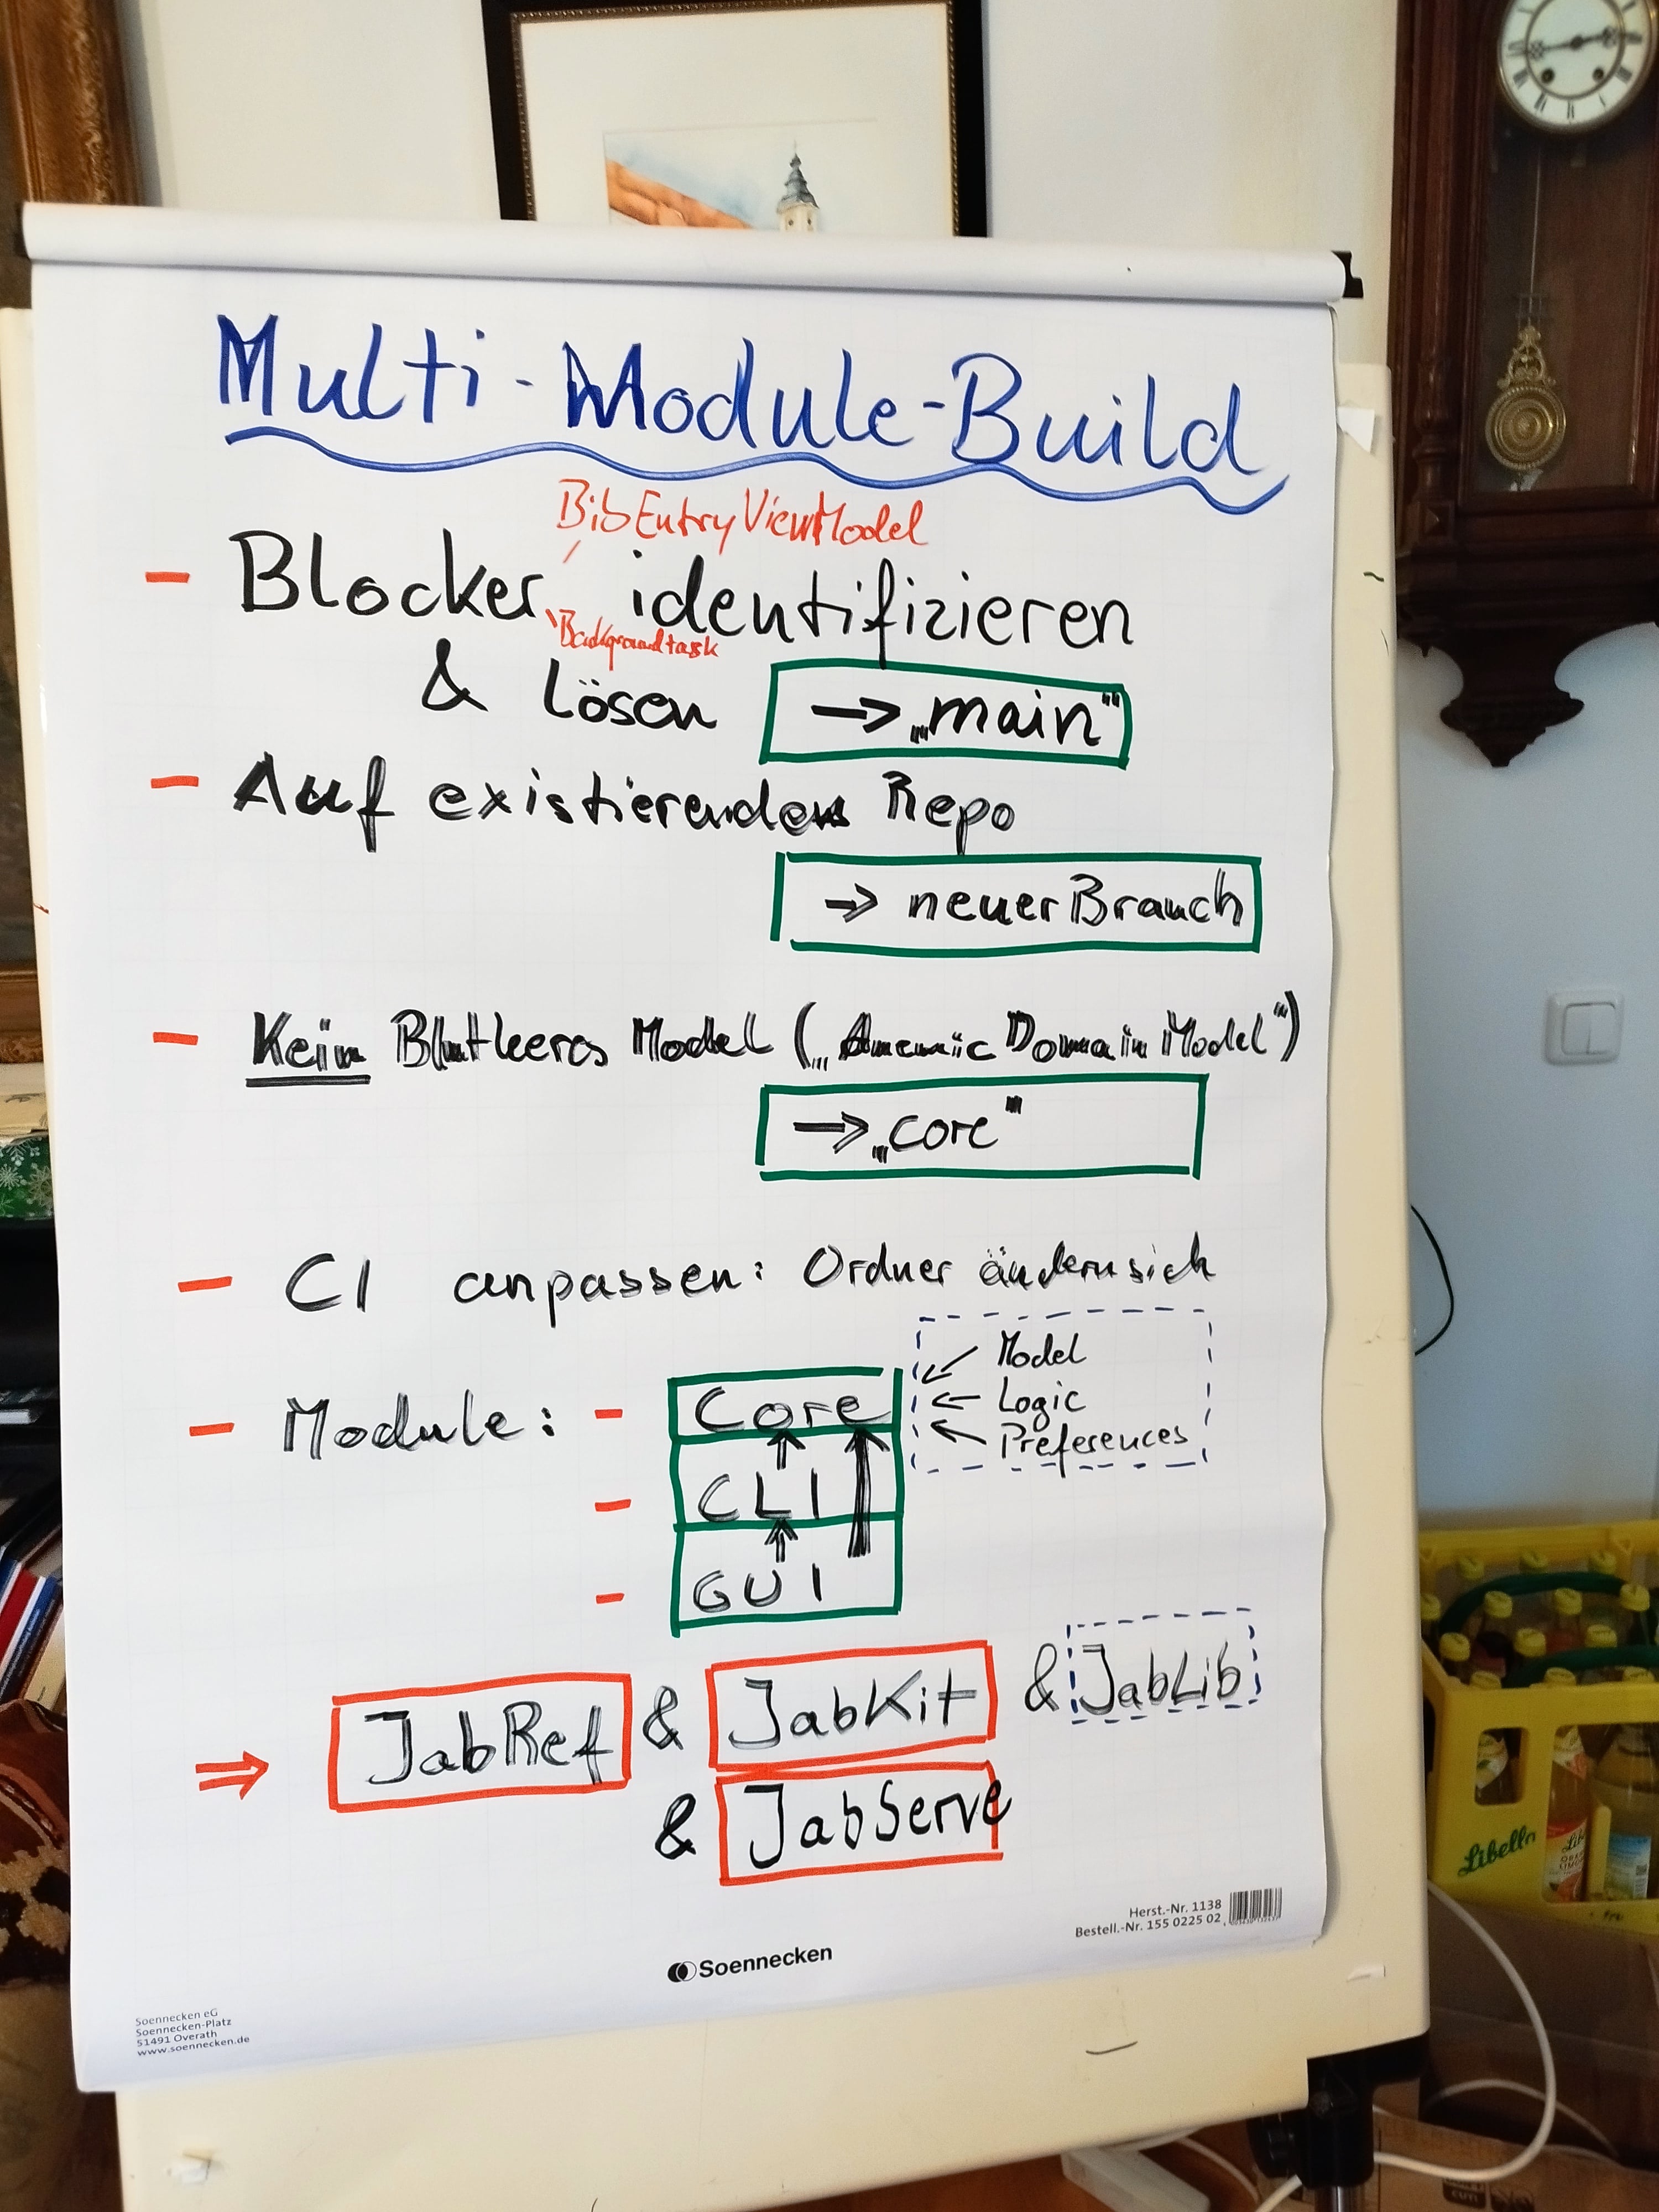 Multi-Module-Build
BibEntryViewModel
- Blocker identifizieren
Backgroundtask
& lösen → „main"
- Auf existierendem Repo
→ neuer Branch
- Kein Blutleeres Model („Anemic Domain Model")
→ „core"
- CI anpassen: Ordner ändern sich
- Module: - Core
← Model
← Logic
← Preferences
- CLI
- GUI
⇒ JabRef & JabKit & JabLib
& JabServe
Herst.-Nr. 1138
Bestell.-Nr. 155 0225 02
Soennecken
Soennecken eG
Soennecken-Platz
51491 Overath
www.soennecken.de
Libella